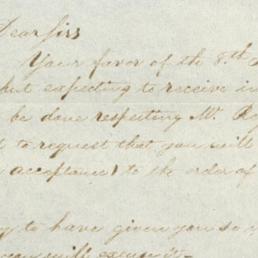 Dear Sirs
Your favor of the 8th
but expecting to receive in
be done respecting Mr. Ro
t to request that you will
acceptance) to the order of
y to have given you so
will excuse it